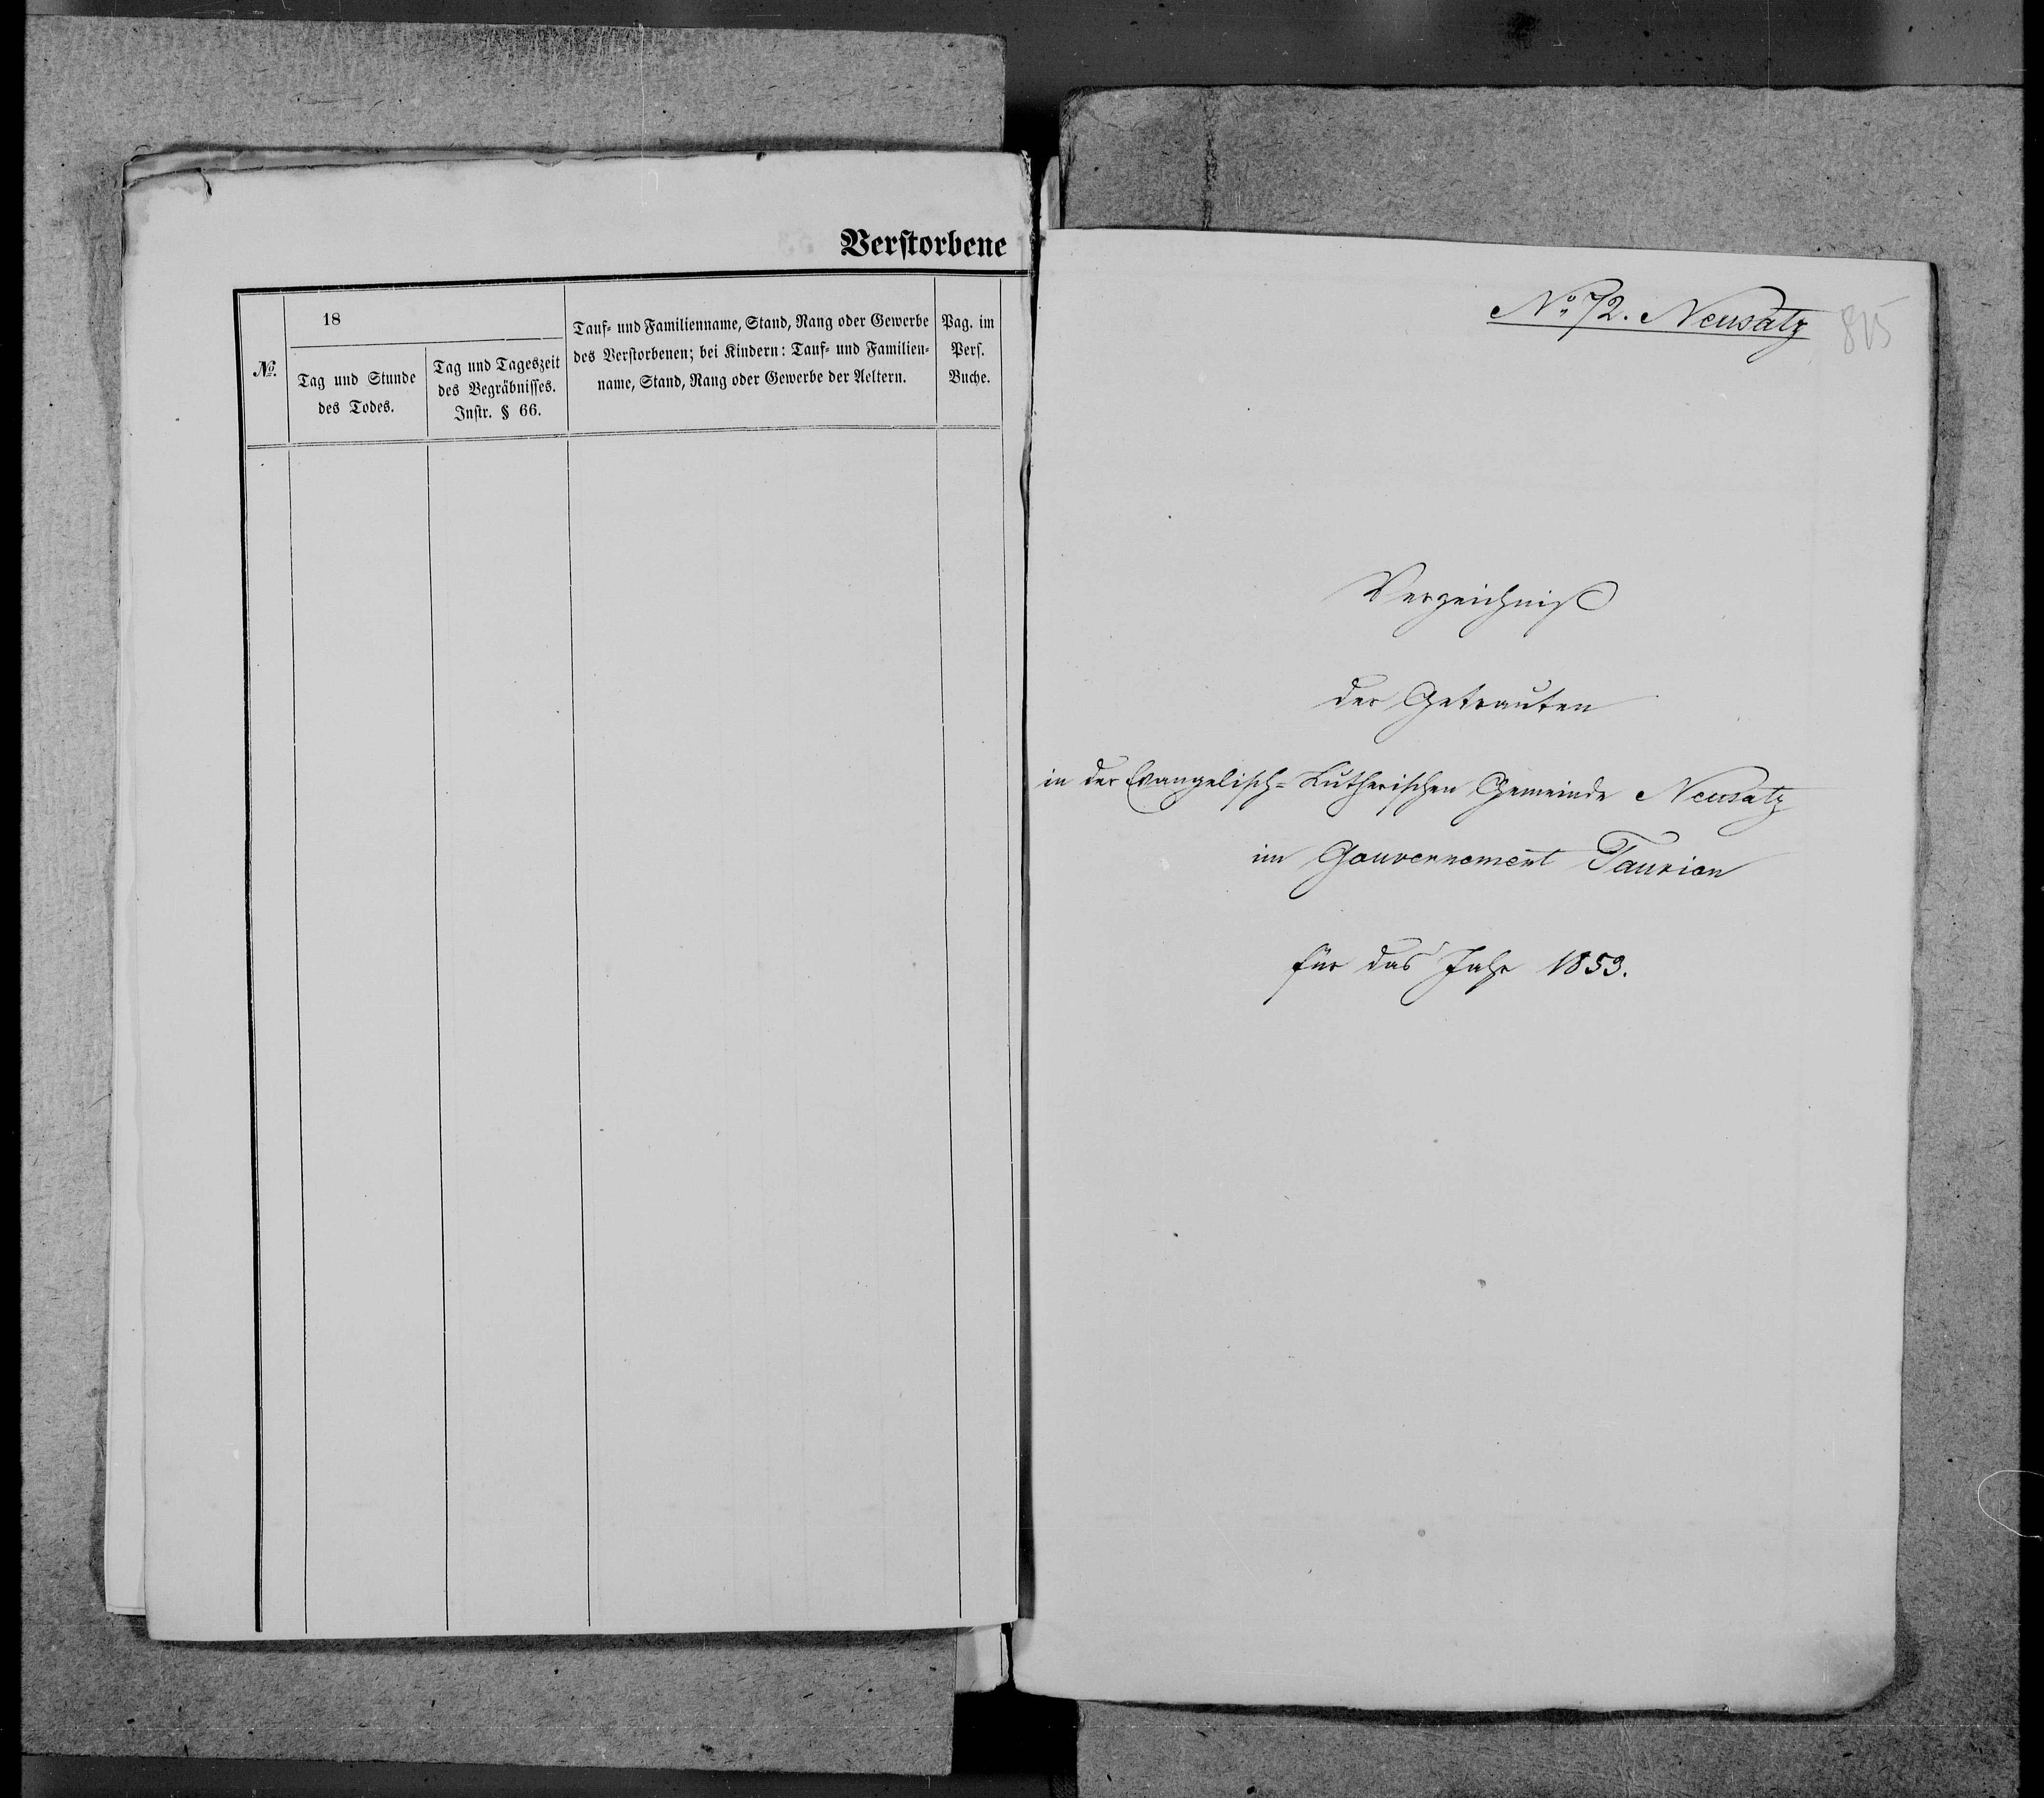 Verstorbene
№.
18
Tag und Stunde
des Todes.
Tag und Tageszeit
des Begräbnisses.
Instr. § 66.
Tauf- und Familienname, Stand, Rang oder Gewerbe
des Verstorbenen; bei Kindern: Tauf- und Familien-
name, Stand, Rang oder Gewerbe der Aeltern.
Pag. im
Pers.
Buche.
No 72. Neusatz
Verzeichniß
der Getrauten
in der Evangelisch-Lutherischen Gemeinde Neusatz
im Gouvernement Taurien
für das Jahr 1853.